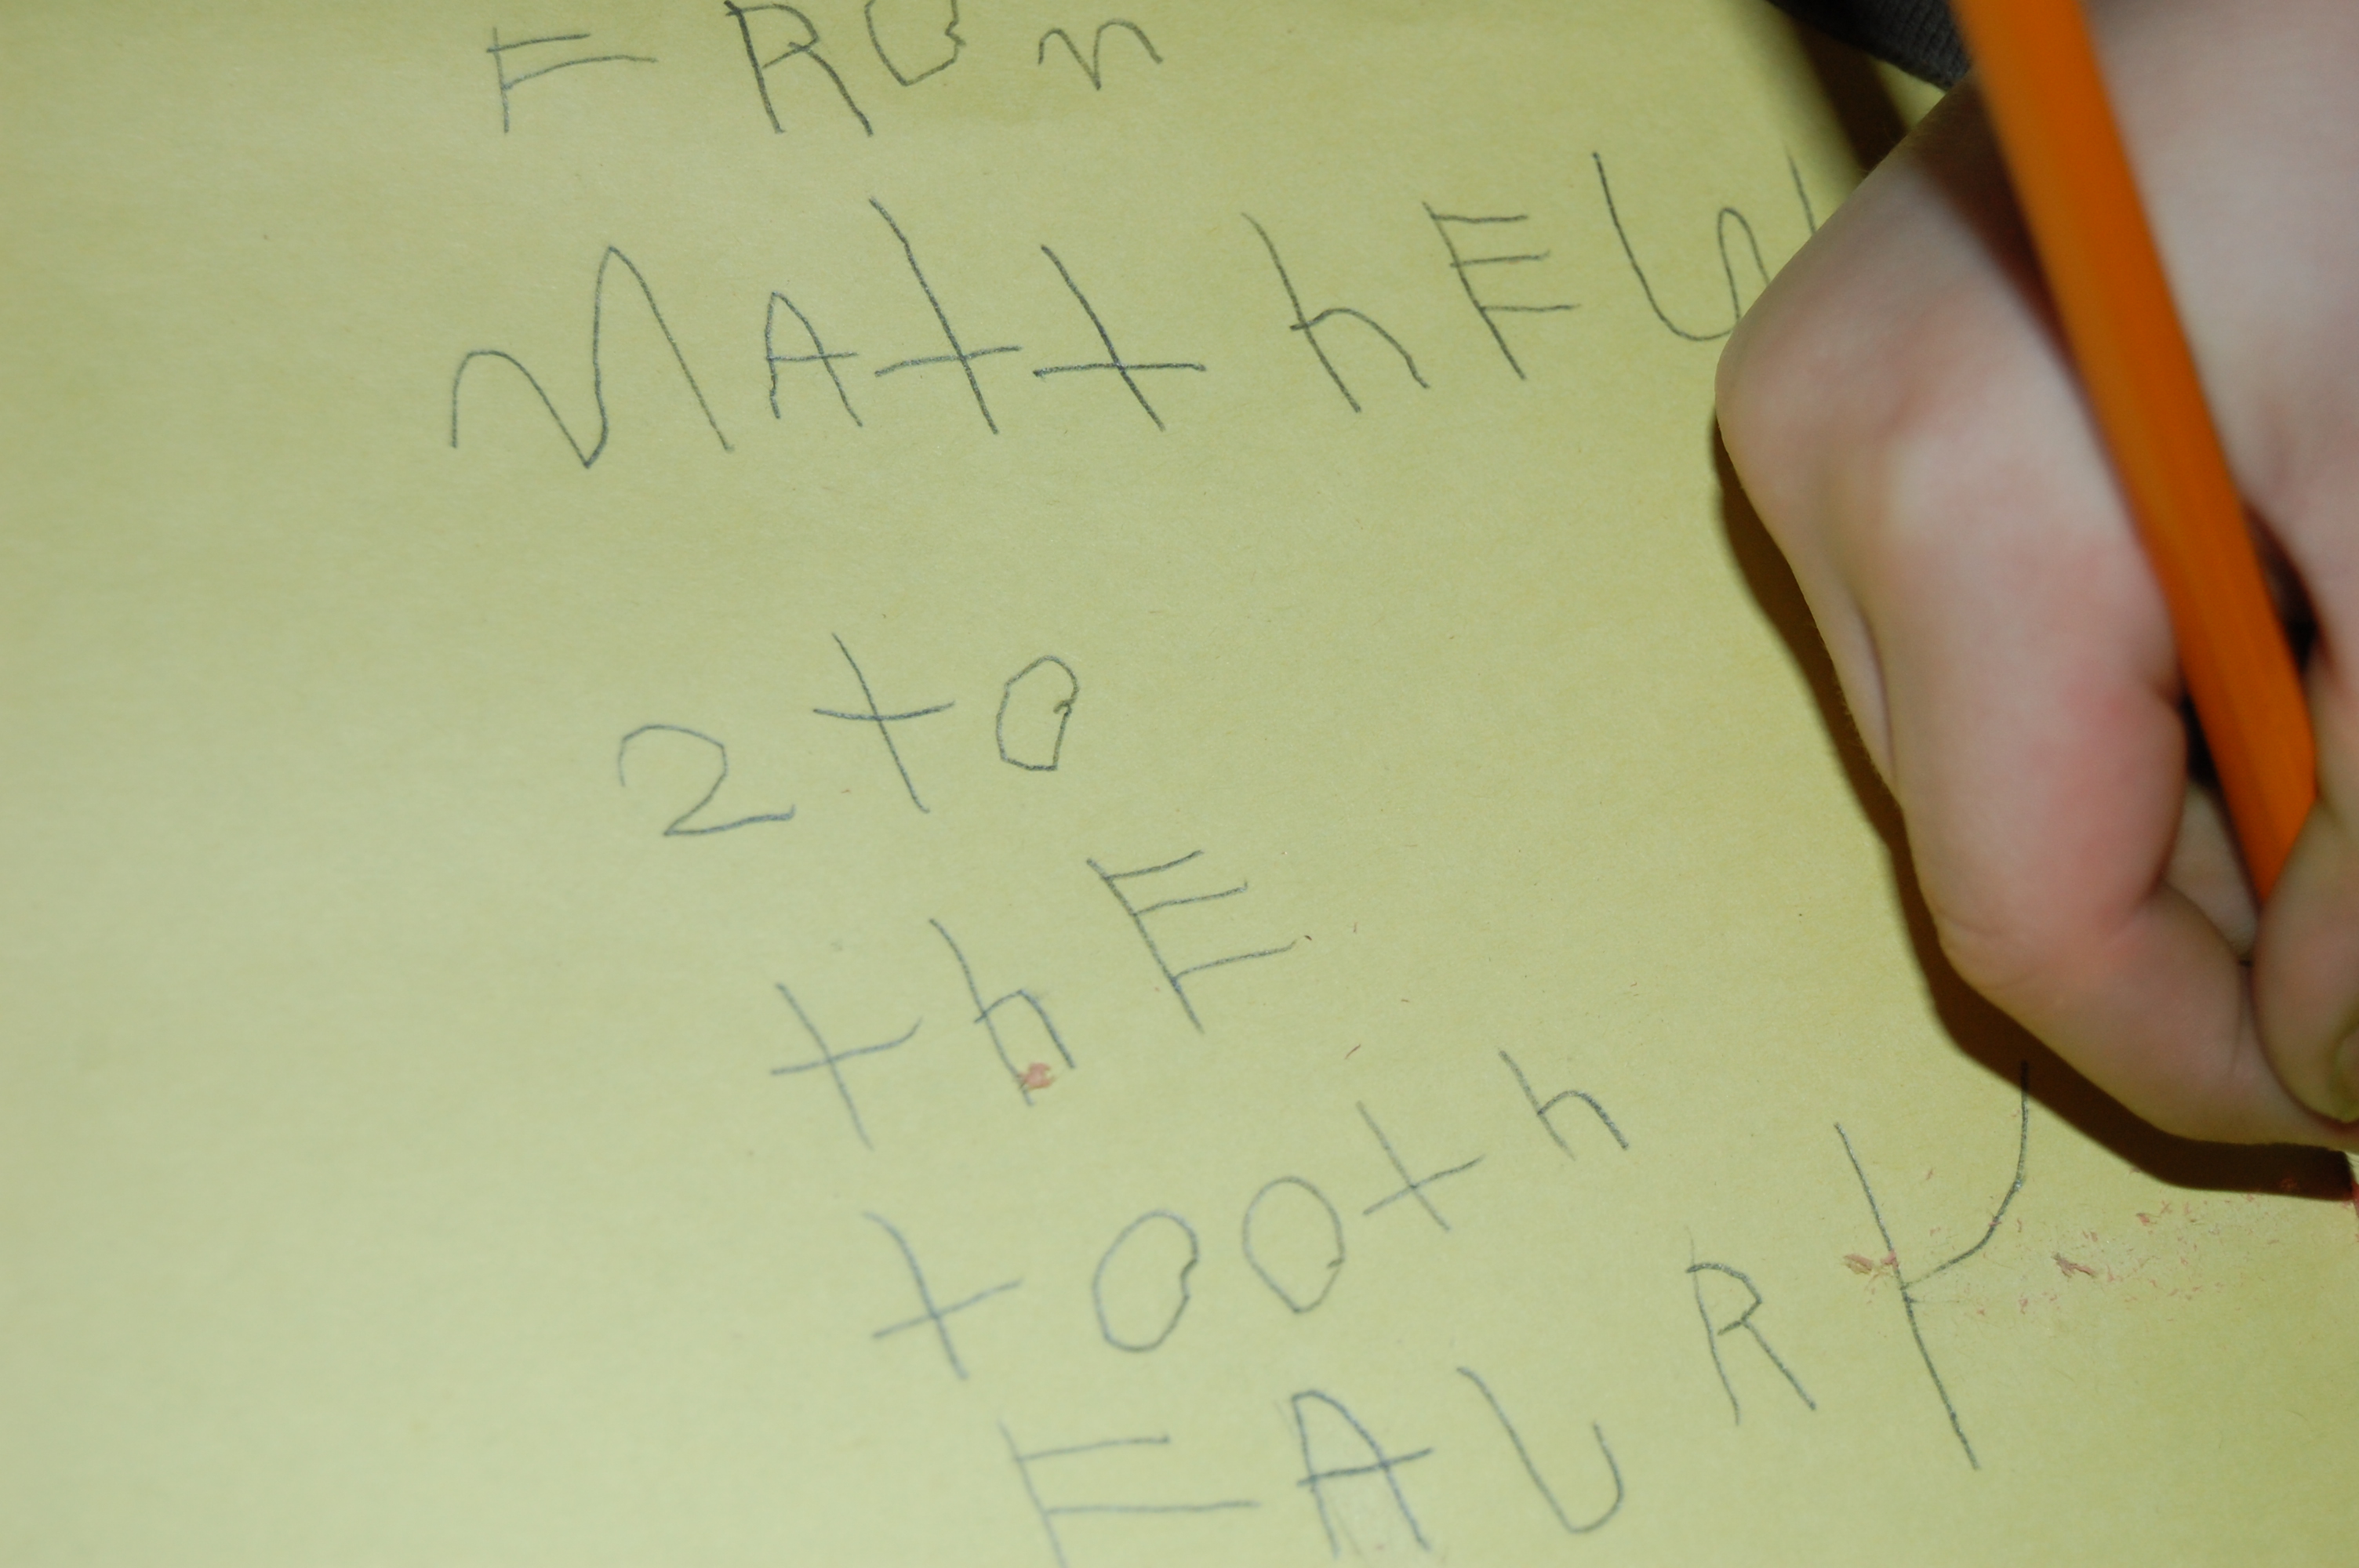 FROm
MAtthEW
2 to
thE
tooth
FAURY